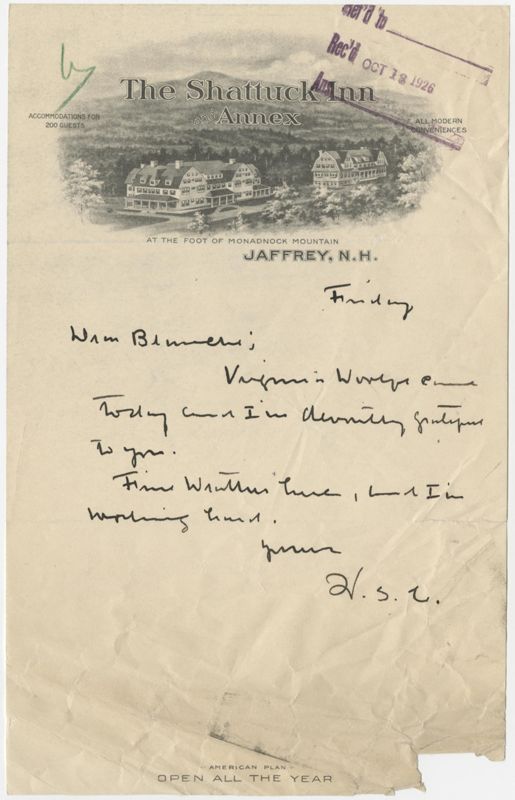 Rec'd OCT 18 1926
The Shattuck Inn
and Annex
ACCOMMODATIONS FOR
200 GUESTS
ALL MODERN
CONVENIENCES
AT THE FOOT OF MONADNOCK MOUNTAIN
JAFFREY, N.H.
Friday
Dear Blanche;
Virginia Woolf came
today and I'm devoutly grateful
to you.
Fine weather here, and I'm
working hard.
yours
W. S. C.
- AMERICAN PLAN -
OPEN ALL THE YEAR